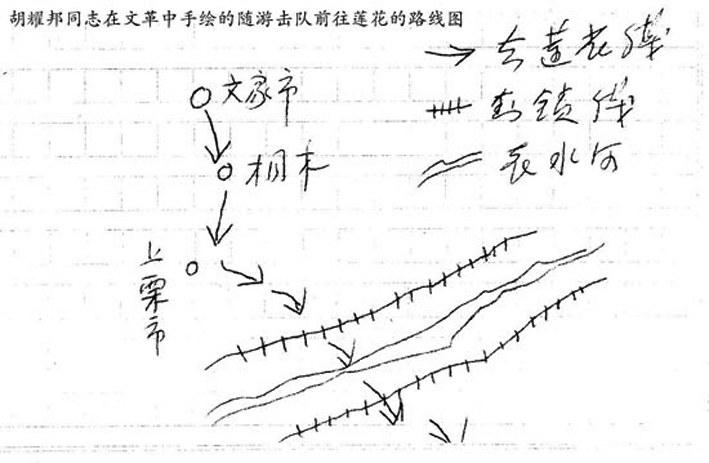 胡耀邦同志在文革中手绘的随游击队前往莲花的路线图
去莲花线
文家市
封锁线
桐木
袁水河
上栗市